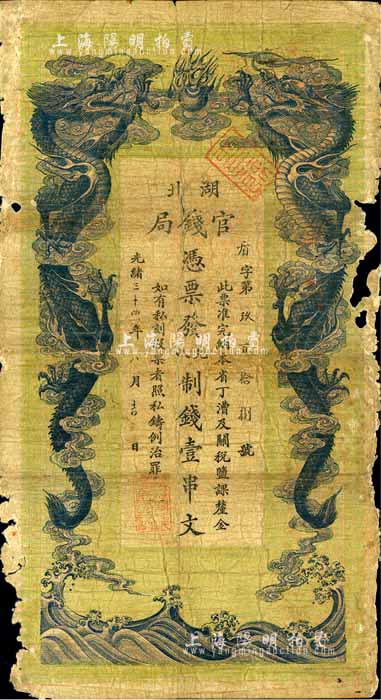 上海陽明拍賣
www.yangmingauction.com
湖北
官錢局
字第玖 拾捌號
此票准完納本省丁漕及關稅鹽課釐金
憑票發制錢壹串文
如有私刻假票者照私鑄例治罪
光緒三十四年 月 日
上海陽明拍賣
www.yangmingauction.com
上海陽明拍賣
www.yangmingauction.com